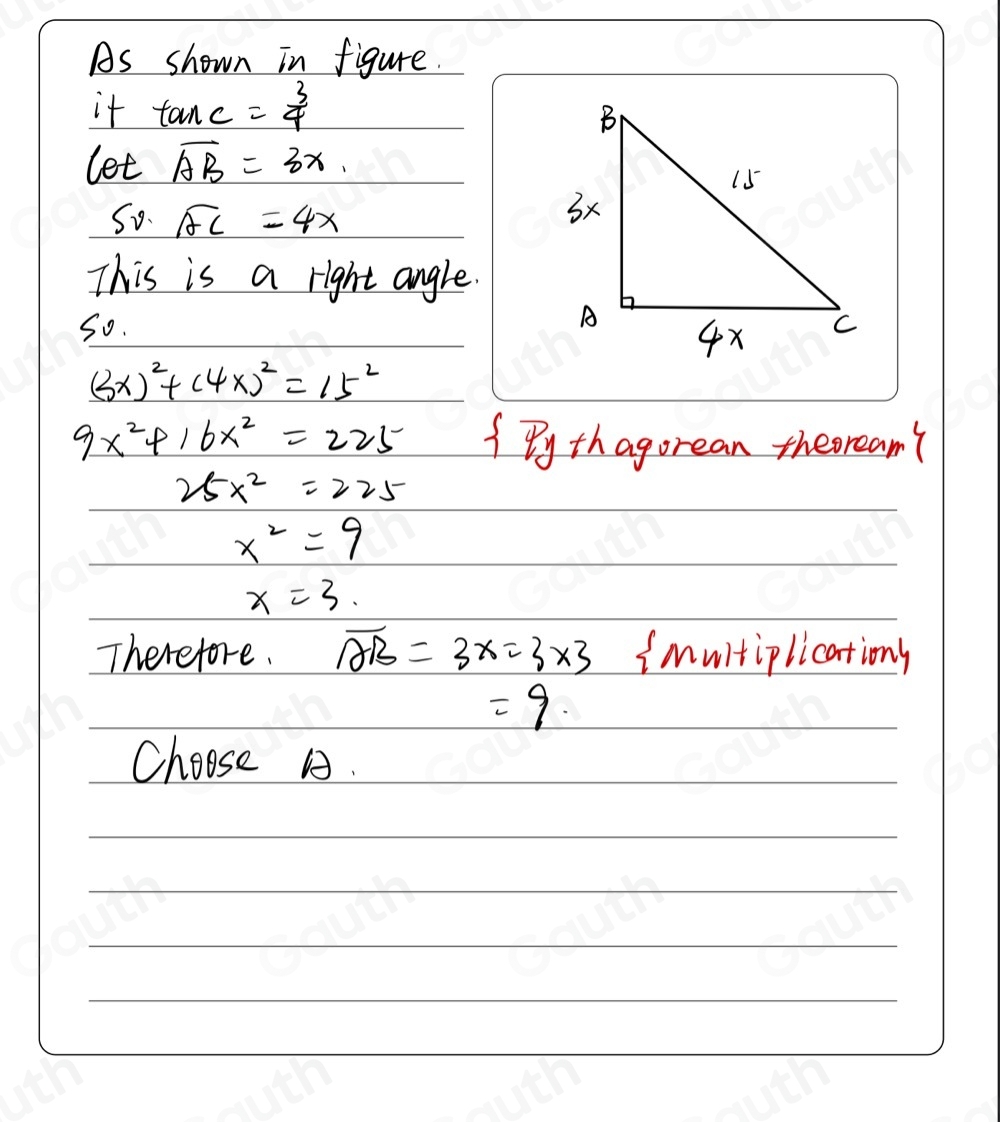 As shown in figure.
if tan c = 3/4
let AB = 3x.
so. AC = 4x
This is a right angle.
so.
(3x)² + (4x)² = 15²
9x² + 16x² = 225 {Pythagorean theoream}
25x² = 225
x² = 9
x = 3.
Therefore. AB = 3x = 3×3 {multiplication}
= 9.
Choose A.
B
15
3x
A
4x
C
Gauth